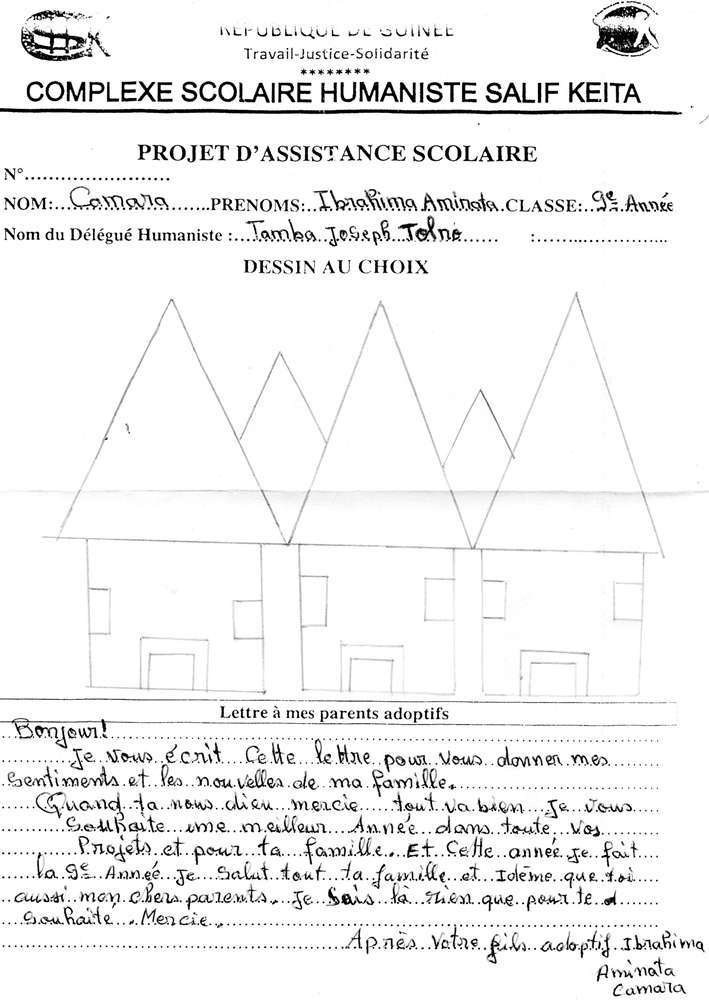 REPUBLIQUE DE GUINEE
Travail-Justice-Solidarité
********
COMPLEXE SCOLAIRE HUMANISTE SALIF KEITA
PROJET D'ASSISTANCE SCOLAIRE
N°........................
NOM:....Camara.......PRENOMS:..Ibrahima Aminata.CLASSE:.9e Année
Nom du Délégué Humaniste :...Tamba Joseph Tolno...... :......................
DESSIN AU CHOIX
Lettre à mes parents adoptifs
Bonjour!
Je vous écrit Cette lettre pour vous donner mes
Sentiments et les nouvelles de ma famille.
Quand ta nous dieu mercie tout va bien Je vous
Souhaite une meilleur Année dans toute vos
Projets et pour ta famille. Et Cette année Je fait
la 9e Année Je Salut tout ta famille et Idème que toi
aussi mon chers parents. Je Sais là rien que pour te
Souhaité Mercie.
Après votre fils adoptif Ibrahima
Aminata
Camara